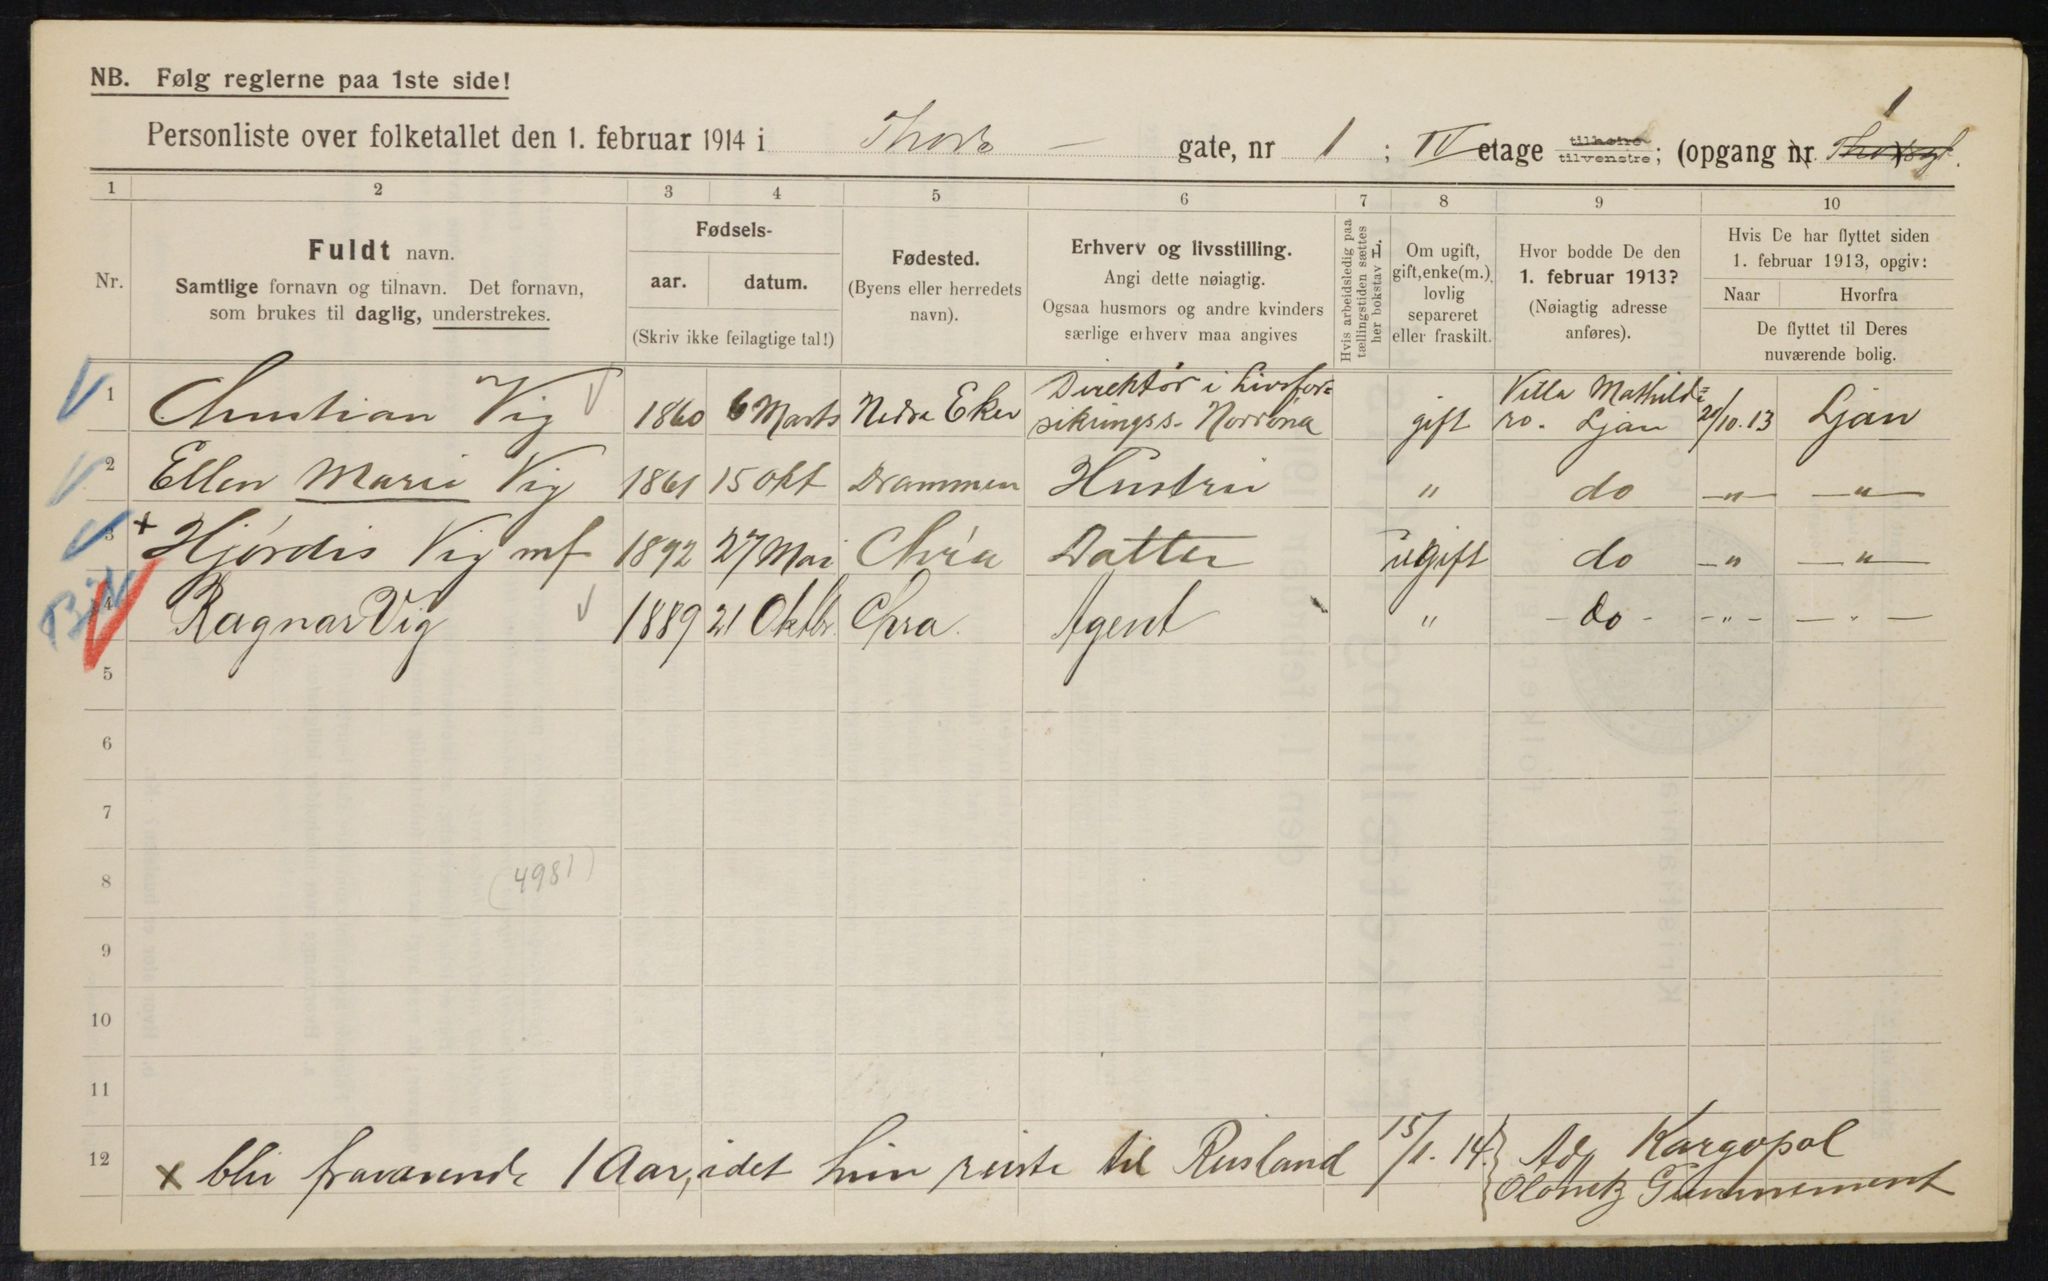 NB. Følg reglerne paa 1ste side!
Personliste over folketallet den 1. februar 1914 i Thors — gate, nr 1 ; IV etage tilhøire tilvenstre; (opgang nr 1 Thorsgt.
1 2 3 4 5 6 7 8 9 10
Nr.
Fuldt navn.
Samtlige fornavn og tilnavn. Det fornavn,
som brukes til daglig, understrekes.
Fødsels-
aar. datum.
(Skriv ikke feilagtige tal!)
Fødested.
(Byens eller herredets
navn).
Erhverv og livsstilling.
Angi dette nøiagtig.
Ogsaa husmors og andre kvinders
særlige erhverv maa angives
Hvis arbeidsledig paa
tællingstiden sættes
her bokstav L.
Om ugift,
gift, enke(m.),
lovlig
separeret
eller fraskilt.
Hvor bodde De den
1. februar 1913?
(Nøiagtig adresse
anføres).
Hvis De har flyttet siden
1. februar 1913, opgiv:
Naar Hvorfra
De flyttet til Deres
nuværende bolig.
1 Christian Vig 1860 6 Marts Nedre Eker Direktør i Livsfor=
sikringss. Norrøna gift Villa Mathilde=
ro. Ljan 20/10.13 Ljan
2 Ellen Marie Vig 1861 15 Okt Drammen Hustru " do —"— —"—
3 x Hjørdis Vig mf 1892 27 Mai Chria Datter ugift do —"— —"—
4 Ragnar Vig 1889 21 Oktbr. Chra. Agent " - do - -"- — " —
5
6
7
8
(4981)
9
10
11
12 x blir fraværende 1 Aar, idet hun reiste til Rusland 15/1.14. Adr Kargopol
Olonetz Gunnement